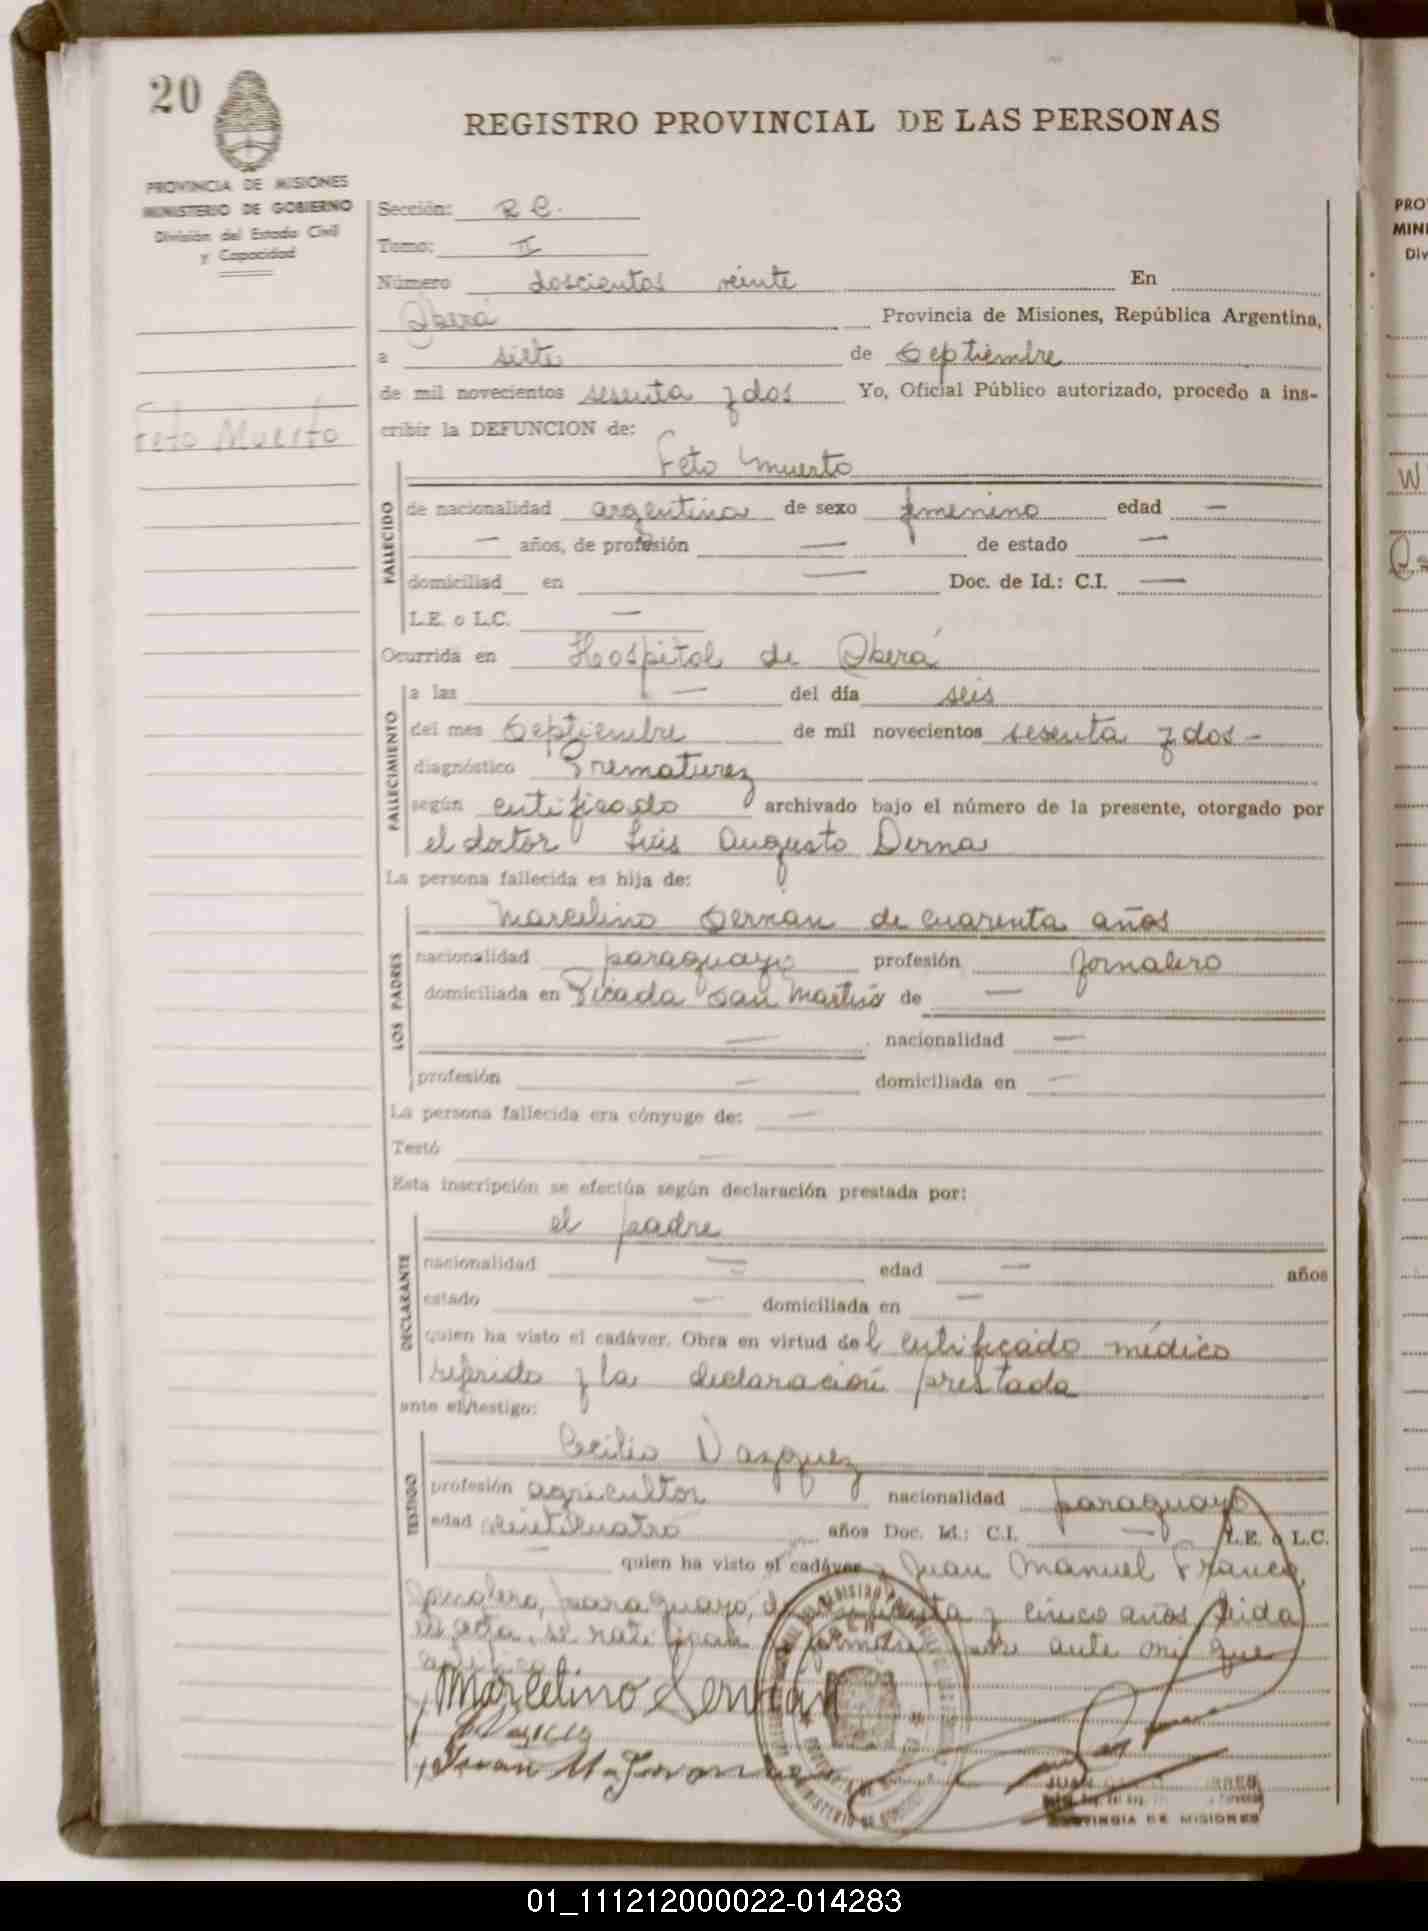 20
REGISTRO PROVINCIAL DE LAS PERSONAS
PROVINCIA DE MISIONES
MINISTERIO DE GOBIERNO
División del Estado Civil
y Capacidad
Sección: R C.
Tomo: II
Número doscientos veinte En
Oberá Provincia de Misiones, República Argentina,
a siete de Septiembre
de mil novecientos sesenta y dos Yo, Oficial Público autorizado, procedo a ins-
Feto Muerto
cribir la DEFUNCION de:
Feto muerto
FALLECIDO
de nacionalidad argentina de sexo femenino edad —
— años, de profesión — de estado —
domiciliad en — Doc. de Id.: C.I. —
L.E. o L.C. —
Ocurrida en Hospital de Oberá
FALLECIMIENTO
a las — del día seis
del mes Septiembre de mil novecientos sesenta y dos -
diagnóstico Prematurez
según certificado archivado bajo el número de la presente, otorgado por
el doctor Luis Augusto Derna
La persona fallecida es hija de:
LOS PADRES
Marcelino Servian de cuarenta años
nacionalidad paraguayo profesión jornalero
domiciliada en Picada San Martín de —
— nacionalidad —
profesión — domiciliada en —
La persona fallecida era cónyuge de: —
Testó —
Esta inscripción se efectúa según declaración prestada por:
DECLARANTE
el padre
nacionalidad — edad — años
estado — domiciliada en —
quien ha visto el cadáver. Obra en virtud del certificado médico
referido y la declaración prestada
ante el/testigo:
TESTIGO
Cecilio Vazquez
profesión agricultor nacionalidad paraguayo
edad veinticuatro años Doc. Id.: C.I. — L.E. o L.C.
— quien ha visto el cadáver y Juan Manuel Franco,
jornalero, paraguayo, de y cinco años Leida
el acta, se ratifican ante mi que
certifico
Marcelino Servian
Juan M. Franco
PROVINCIA DE MISIONES
PRO
MINI
Div
W
01_111212000022-014283